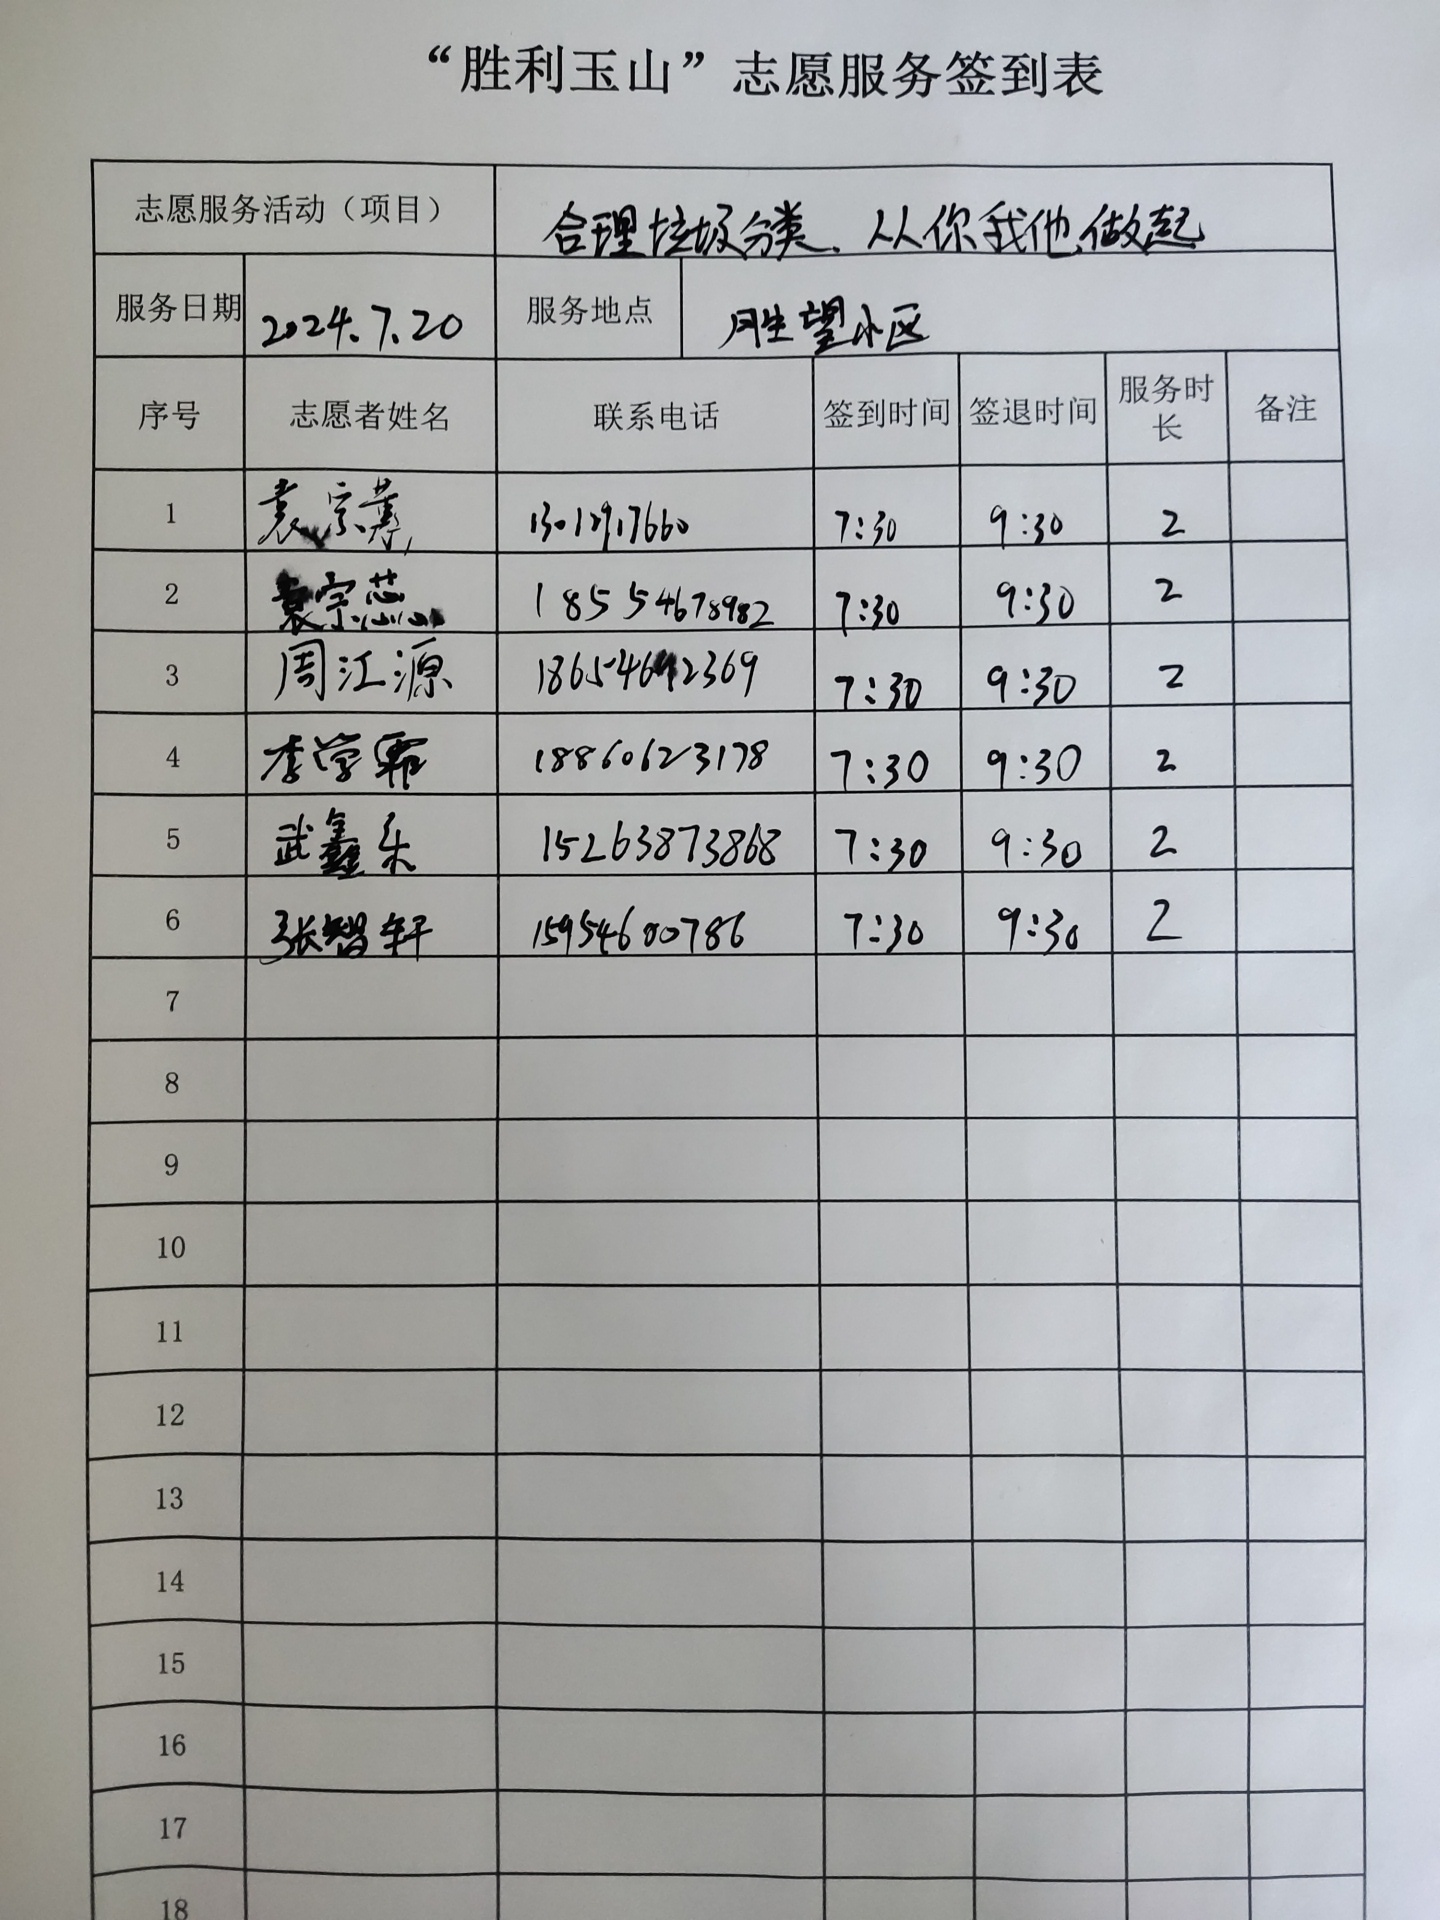 “胜利玉山”志愿服务签到表
志愿服务活动（项目） 合理垃圾分类、从你我他做起
服务日期 2024.7.20 服务地点 胜望小区
序号 志愿者姓名 联系电话 签到时间 签退时间 服务时长 备注
1 袁宗 7:30 9:30 2
2 袁宗蕊 18554678982 7:30 9:30 2
3 周江源 7:30 9:30 2
4 李学霏 18860623178 7:30 9:30 2
5 武鑫乐 15263873868 7:30 9:30 2
6 张智轩 15954600786 7:30 9:30 2
7
8
9
10
11
12
13
14
15
16
17
18